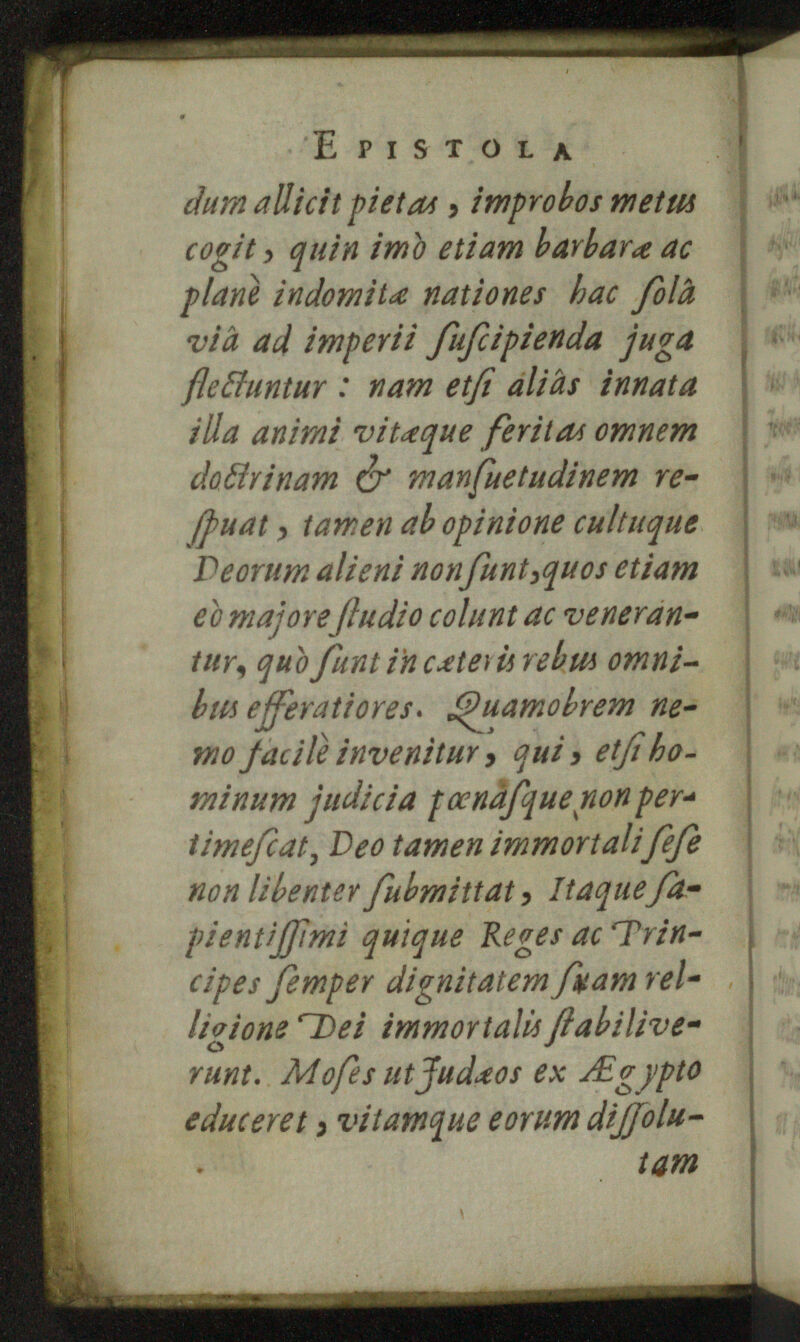 EPISTOLA
dum allicit pietas, improbos metus
cogit, quin imò etiam barbaræ ac
planè indomitæ nationes hac ſolâ
viâ ad imperii ſuſcipienda juga
flectuntur : nam etſi aliàs innata
illa animi vitæque feritas omnem
doctrinam & manſuetudinem re-
ſpuat, tamen ab opinione cultuque
Deorum alieni non ſunt, quos etiam
eò majore ſtudio colunt ac veneran-
tur, quò ſunt in cæteris rebus omni-
bus efferatiores. Quamobrem ne-
mo facilè invenitur, qui, etſi ho-
minum judicia pœnáſque non per-
timeſcat, Deo tamen immortali ſeſe
non libenter ſubmittat, Itaque ſa-
pientiſſimi quique Reges ac Prin-
cipes ſemper dignitatem ſuam rel-
ligione Dei immortalis ſtabilive-
runt. Moſes ut Judæos ex Ægypto
educeret, vitamque eorum diſſolu-
tam